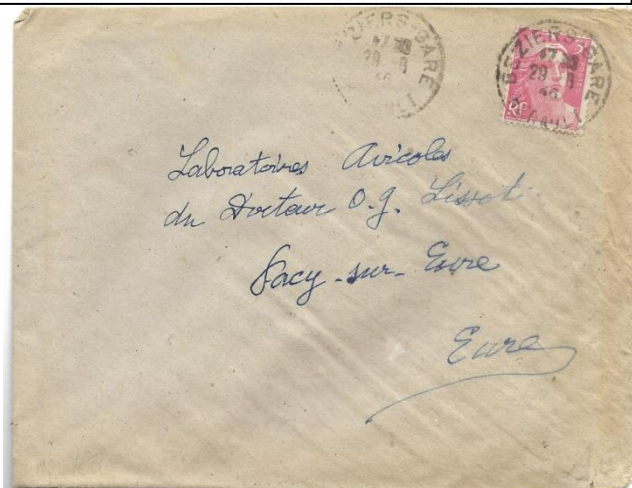 BEZIERS-GARE
29
46
BEZIERS-GARE
29
46
RF
Laboratoires Avicoles
du Docteur O.G. Lissot
Pacy-sur-Eure
Eure